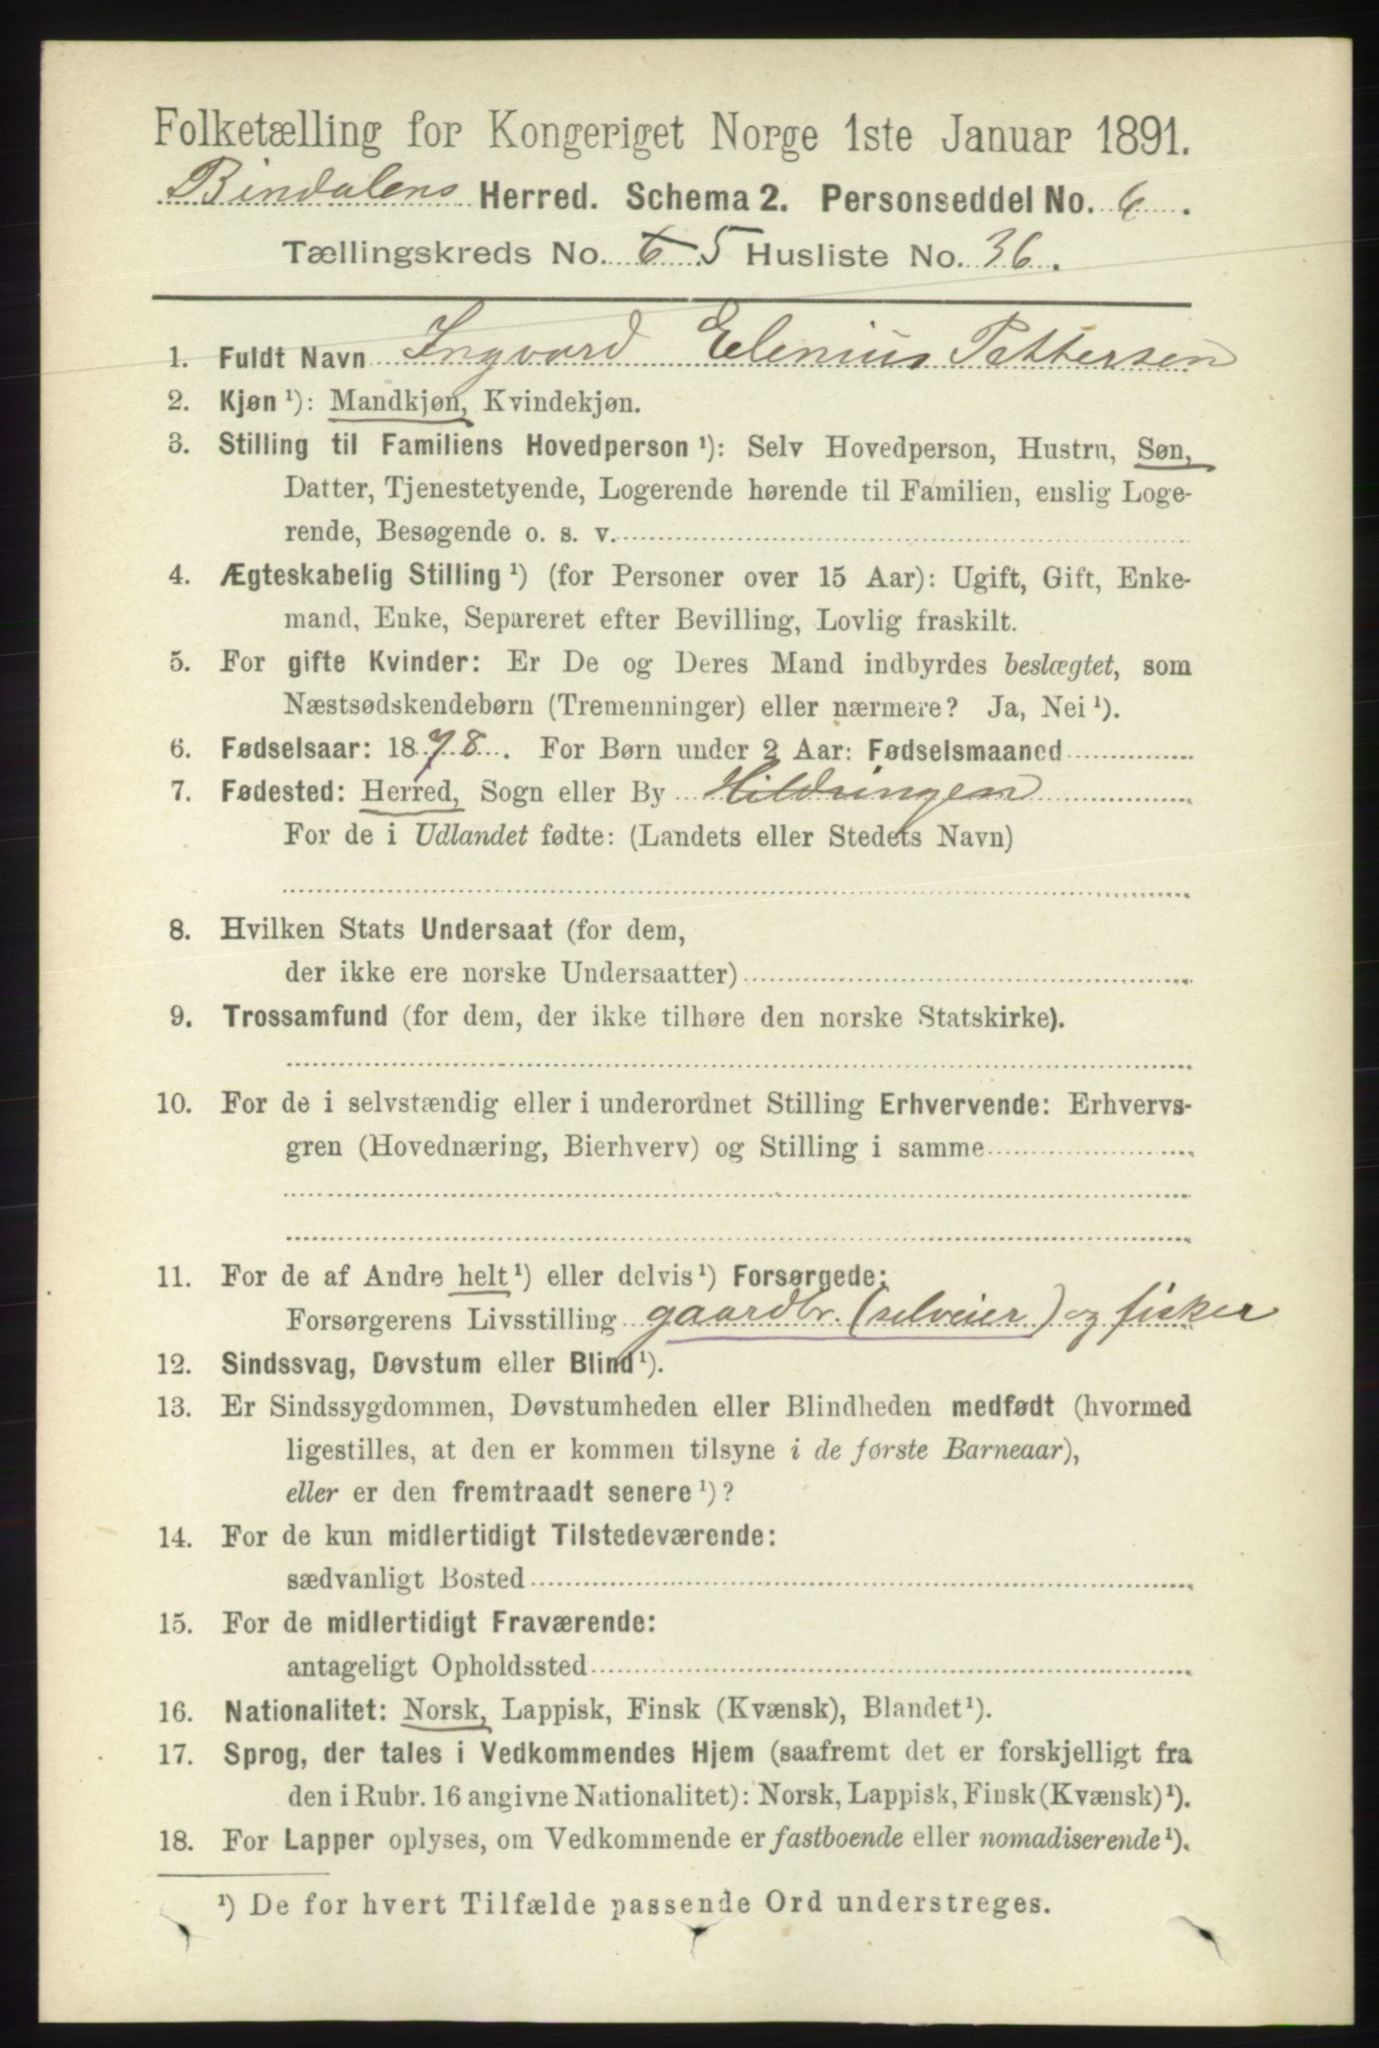 Folketælling for Kongeriget Norge 1ste Januar 1891.
Bindalens Herred. Schema 2. Personseddel No. 6.
Tællingskreds No. 6 5 Husliste No. 36.
1. Fuldt Navn Ingvard Elenius Pettersen
2. Kjøn ¹): Mandkjøn, Kvindekjøn.
3. Stilling til Familiens Hovedperson ¹): Selv Hovedperson, Hustru, Søn,
Datter, Tjenestetyende, Logerende hørende til Familien, enslig Loge-
rende, Besøgende o. s. v.
4. Ægteskabelig Stilling ¹) (for Personer over 15 Aar): Ugift, Gift, Enke-
mand, Enke, Separeret efter Bevilling, Lovlig fraskilt.
5. For gifte Kvinder: Er De og Deres Mand indbyrdes beslægtet, som
Næstsødskendebørn (Tremenninger) eller nærmere? Ja, Nei ¹).
6. Fødselsaar: 1878. For Børn under 2 Aar: Fødselsmaaned
7. Fødested: Herred, Sogn eller By Hildringen
For de i Udlandet fødte: (Landets eller Stedets Navn)
8. Hvilken Stats Undersaat (for dem,
der ikke ere norske Undersaatter)
9. Trossamfund (for dem, der ikke tilhøre den norske Statskirke).
10. For de i selvstændig eller i underordnet Stilling Erhvervende: Erhvervs-
gren (Hovednæring, Bierhverv) og Stilling i samme
11. For de af Andre helt ¹) eller delvis ¹) Forsørgede:
Forsørgerens Livsstilling gaardbr. (selveier) og fisker
12. Sindssvag, Døvstum eller Blind ¹).
13. Er Sindssygdommen, Døvstumheden eller Blindheden medfødt (hvormed
ligestilles, at den er kommen tilsyne i de første Barneaar),
eller er den fremtraadt senere ¹)?
14. For de kun midlertidigt Tilstedeværende:
sædvanligt Bosted
15. For de midlertidigt Fraværende:
antageligt Opholdssted
16. Nationalitet: Norsk, Lappisk, Finsk (Kvænsk), Blandet ¹).
17. Sprog, der tales i Vedkommendes Hjem (saafremt det er forskjelligt fra
den i Rubr. 16 angivne Nationalitet): Norsk, Lappisk, Finsk (Kvænsk) ¹).
18. For Lapper oplyses, om Vedkommende er fastboende eller nomadiserende ¹).
¹) De for hvert Tilfælde passende Ord understreges.